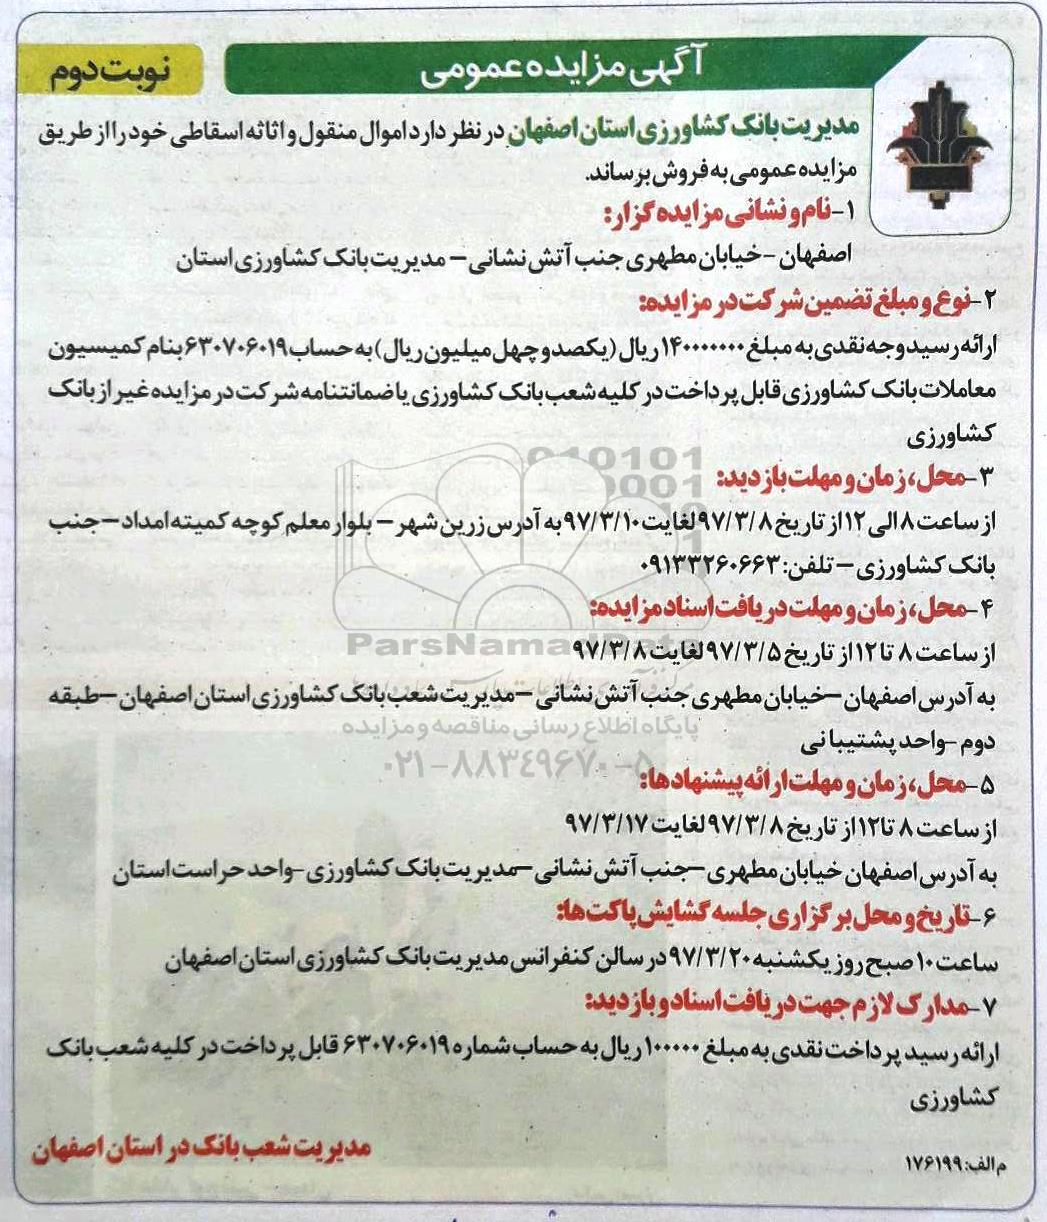 آگهی مزایده عمومی
نوبت دوم
مدیریت بانک کشاورزی استان اصفهان در نظر دارد اموال منقول و اثاثه اسقاطی خود را از طریق
مزایده عمومی به فروش برساند.
۱- نام و نشانی مزایده گزار:
اصفهان - خیابان مطهری جنب آتش نشانی – مدیریت بانک کشاورزی استان
۲- نوع و مبلغ تضمین شرکت در مزایده:
ارائه رسید وجه نقدی به مبلغ ۱۴۰۰۰۰۰۰۰ ریال (یکصد و چهل میلیون ریال) به حساب ۶۳۰۷۰۶۰۱۹ بنام کمیسیون
معاملات بانک کشاورزی قابل پرداخت در کلیه شعب بانک کشاورزی یا ضمانتنامه شرکت در مزایده غیر از بانک
کشاورزی
۳- محل، زمان و مهلت بازدید:
از ساعت ۸ الی ۱۲ از تاریخ ۹۷/۳/۸ لغایت ۹۷/۳/۱۰ به آدرس زرین شهر – بلوار معلم کوچه کمیته امداد – جنب
بانک کشاورزی – تلفن: ۰۹۱۳۳۲۶۰۶۶۳
۴- محل، زمان و مهلت دریافت اسناد مزایده:
از ساعت ۸ تا ۱۲ از تاریخ ۹۷/۳/۵ لغایت ۹۷/۳/۸
ParsNamadData
به آدرس اصفهان – خیابان مطهری جنب آتش نشانی – مدیریت شعب بانک کشاورزی استان اصفهان – طبقه
پایگاه اطلاع رسانی مناقصه و مزایده
دوم - واحد پشتیبانی
۰۲۱-۸۸۳۴۹۶۷۰-۵
۵- محل، زمان و مهلت ارائه پیشنهادها:
از ساعت ۸ تا ۱۲ از تاریخ ۹۷/۳/۸ لغایت ۹۷/۳/۱۷
به آدرس اصفهان خیابان مطهری – جنب آتش نشانی – مدیریت بانک کشاورزی - واحد حراست استان
۶- تاریخ و محل برگزاری جلسه گشایش پاکت ها:
ساعت ۱۰ صبح روز یکشنبه ۹۷/۳/۲۰ در سالن کنفرانس مدیریت بانک کشاورزی استان اصفهان
۷- مدارک لازم جهت دریافت اسناد و بازدید:
ارائه رسید پرداخت نقدی به مبلغ ۱۰۰۰۰۰ ریال به حساب شماره ۶۳۰۷۰۶۰۱۹ قابل پرداخت در کلیه شعب بانک
کشاورزی
مدیریت شعب بانک در استان اصفهان
م الف: ۱۷۶۱۹۹